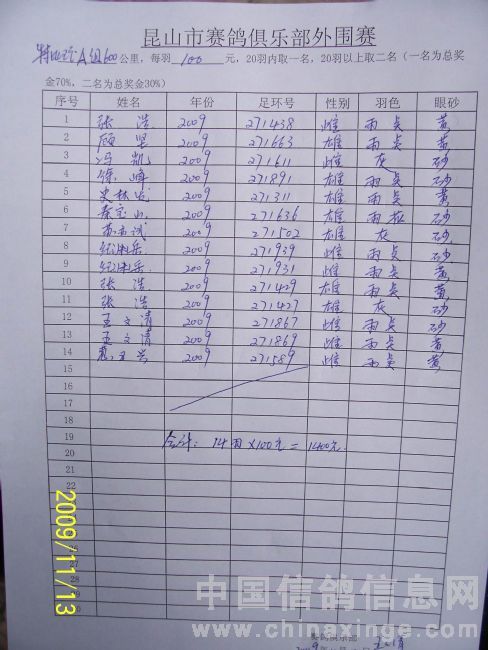 昆山市赛鸽俱乐部外围赛
特比环A组600公里，每羽100元，20羽内取一名，20羽以上取二名（一名为总奖
金70%，二名为总奖金30%）
序号 姓名 年份 足环号 性别 羽色 眼砂
1 张浩 2009 271438 雌 雨点 黄
2 顾坚 2009 271663 雄 雨点 黄
3 冯凯 2009 271611 雌 灰 砂
4 徐峰 2009 271891 雄 雨点 砂
5 史林发 2009 271311 雄 雨点 黄
6 秦宝山 2009 271636 雄 雨 砂
7 2009 271502 雄 灰 砂
8 2009 271939 雌 雨点 砂
9 2009 271931 雌 雨点 黄
10 张浩 2009 271429 雄 雨点 黄
11 张浩 2009 271427 雄 灰 砂
12 王文清 2009 271867 雌 雨点 砂
13 王文清 2009 271869 雌 雨点 黄
14 2009 271589 雌 雨点 黄
15
16
17
18
19 合计：14羽×100元=1400元.
20
21
22
23
24
25
26
27
28
29
赛鸽俱乐部
2009/11/13
中国信鸽信息网
www.chinaxinge.com